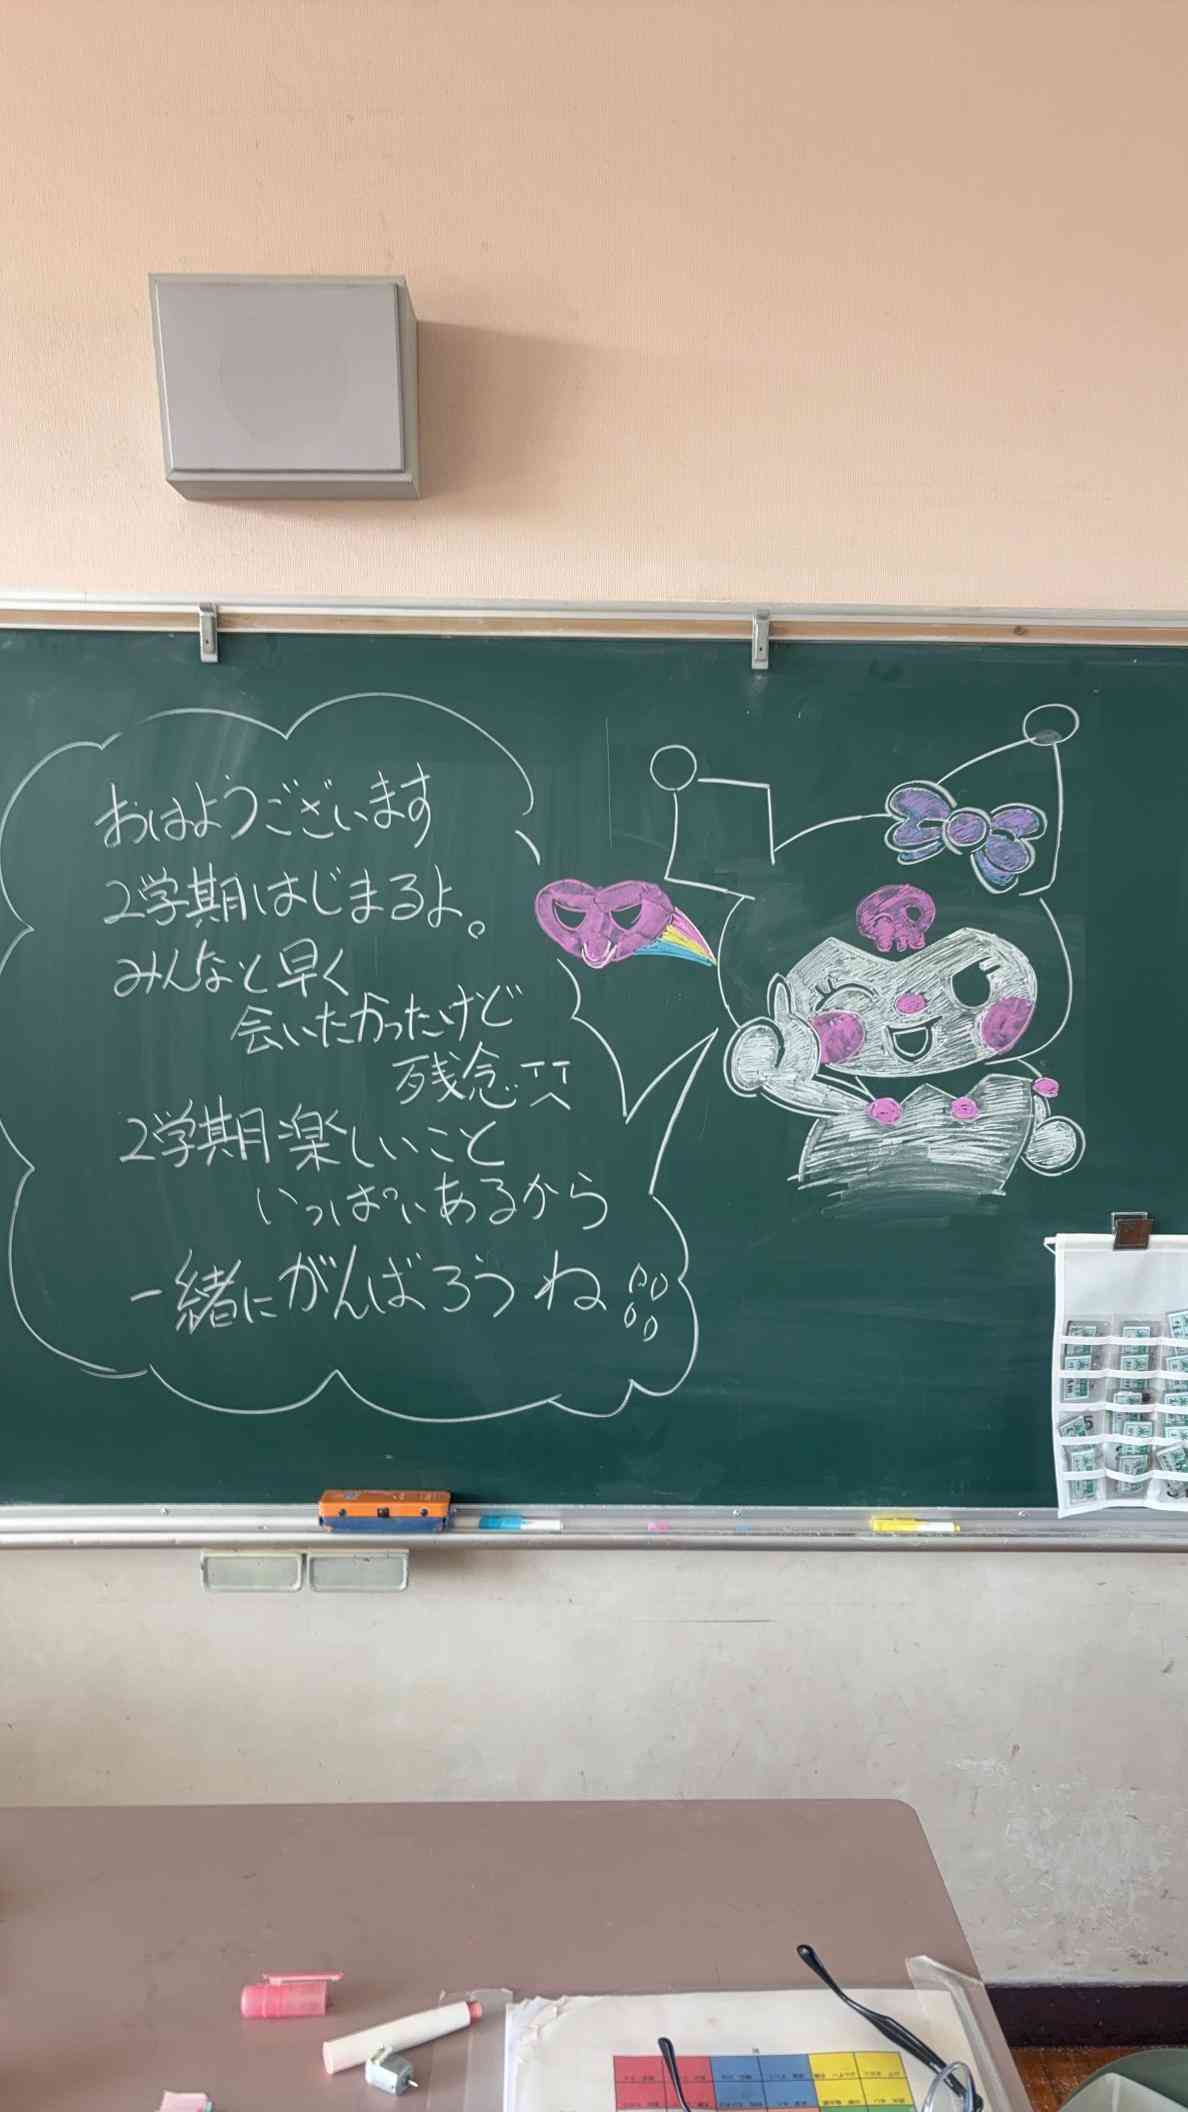 おはようございます
2学期はじまるよ。
みんなと早く
会いたかったけど
残念。TT
2学期楽しいこと
いっぱいあるから
一緒にがんばろうね